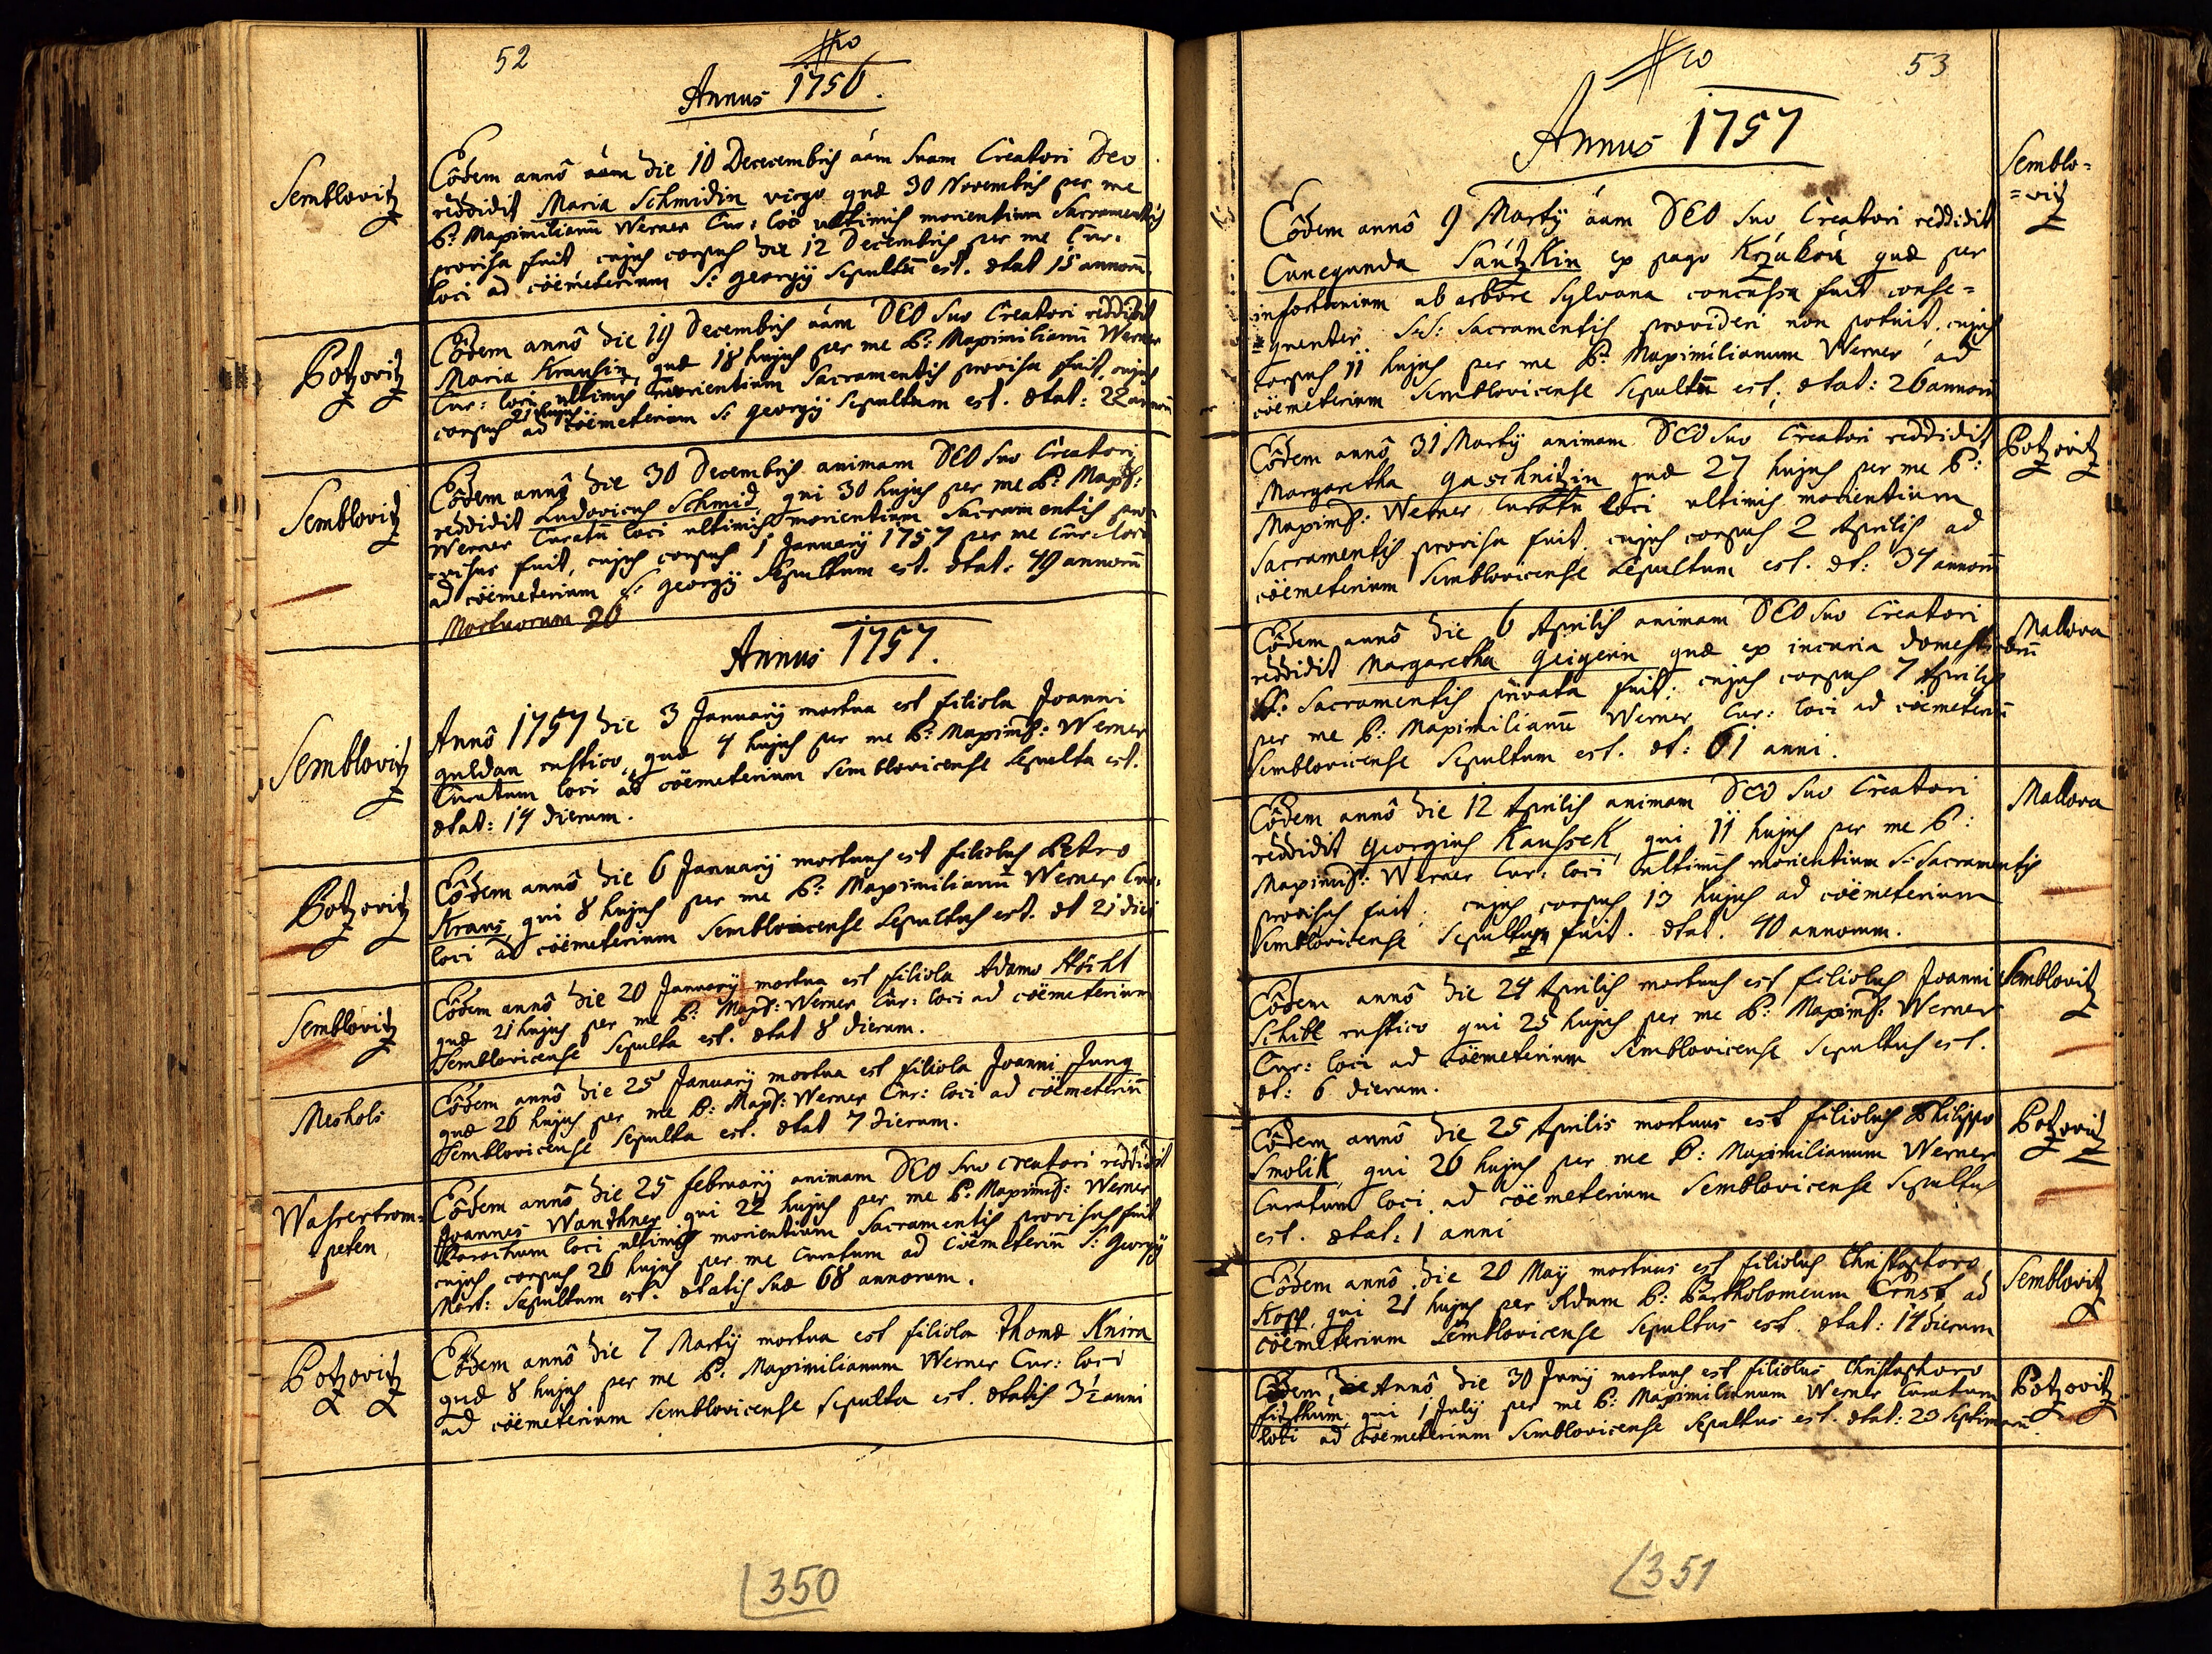 52
Annus 1756.
Semblovitz
Eôdem annô die 10 Dececembris áam suam Creatori Deo
reddidit Maria Schmidin virgo quæ 30 Novembris per me
P: Maximilianũ Werner Cur: loci ultimis morientium Sacramentis
provisa fuit cujus corpus die 12 Decembris per me Cur:
loci ad cöemeterium S: Georgÿ Sepultũ est. ætat 15 annorũ.
Potzovitz
Eôdem annô die 19 Decembris áam DEO suo Creatori reddidit
Maria Krausin, quæ 18 hujus per me P: Maximilianũ Werner
Cur: loci ultimis morientium Sacramentis provisa fuit, cujus
corpus 21 hujus ad cöemeterium S: Georgÿ Sepultum est. ætat: 22 annorũ
Semblovitz
Eôdem annô die 30 Decembris animam DEO suo Creatori
reddidit Ludovicus Schmid, qui 30 hujus per me P: Max:
Werner Curatũ loci ultimis morientium Sacramentis pro=
=visus fuit, cujus corpus 1 Januarÿ 1757 per me Cur: loci
ad cöemeterium S: Georgÿ Sepultum est. ætat: 49 annorũ
Mortuorum 20
Annus 1757.
Semblovitz
Annô 1757 die 3 Januarÿ mortua est filiola Joanni
Guldan rustico, quæ 4 hujus per me P: Maxim: Werner
Curatum loci ad cöemeterium Semblovicense Sepulta est.
ætat: 14 dierum.
Potzovitz
Eôdem annô die 6 Januarÿ mortuus est filiolus Petro
Kraus, qui 8 hujus per me P: Maximilianũ Werner Cur:
loci ad cöemeterium Semblovicense Sepultus est. æt 21 diei
Semblovitz
Eôdem annô die 20 Januarÿ mortua est filiola Adamo Höchl
quæ 21 hujus per me P: Max: Werner Cur: loci ad cöemeterium
Semblovicense Sepulta est. ætat 8 dierum.
Meshols
Eôdem annô die 25 Januarÿ mortua est filiola Joanni Jung
quæ 26 hujus per me P: Max: Werner Cur: loci ad cöemeteriũ
Semblovicense Sepulta est. ætat 7 dierum.
Wasrertrom=
=peten
Eôdem annô die 25 februarÿ animam DEO suo creatori reddidit
Joannes Wanthner qui 22 hujus per me P: Maxim: Werner
Parochum loci ultimis morientium Sacramentis provisus fuit
cujus corpus 26 hujus per me Curatum ad Cöemeteriũ S: Georgÿ
Mart: Sepultum est. ætatis suæ 68 annorum.
Potzovitz
Eôdem annô die 7 Martÿ mortua est filiola Thomæ Knira
quæ 8 hujus per me P: Maximilianum Werner Cur: loci
ad cöemeterium Semblovicense Sepulta est. ætatis 3½ anni
350
53
Annus 1757
Semblo=
=vitz
Eôdem annô 9 Martÿ áam DEO suo Creatori reddidit
Cunegunda Sáutzkin ex pago Krzakau quæ per
infortunium ab arbore Sylvana concussa fuit conse=
=quenter S:S: Sacramentis provideri non potuit, cujus
corpus 11 hujus per me P: Maximilianum Werner ad
cöemeterium Semblovicense Sepultũ est; ætat: 26 annorũ
Potzovitz
Eôdem annô 31 Martÿ animam DEO suo Creatori reddidit
Margaretha Gaschnitzin quæ 27 hujus per me P:
Maxim: Werner Curatũ loci ultimis morientium
Sacramentis provisa fuit. cujus corpus 2 Aprilis ad
cöemeterium Semblovicense Sepultum est. æt: 34 annorũ
Mallova
Eôdem annô die 6 Aprilis animam DEO suo Creatori
reddidit Margaretha Geigerin quæ ex incuria domesticorũ
SS: Sacramentis privata fuit: cujus corpus 7 Aprilis
per me P: Maximilianũ Werner Cur: loci ad cöemeteriũ
Semblovicense Sepultum est. æt: 61 anni.
Mallova
Eôdem annô die 12 Aprilis animam DEO suo Creatori
reddidit Georgius Kaussek, qui 11 hujus per me P:
Maxim: Werner Cur: loci ultimis morientium S: Sacramentis
provisus fuit. cujus corpus 13 hujus ad cöemeterium
Semblovicense Sepultum fuit. ætat. 40 annorum.
Semblovitz
Eôdem annô die 24 Aprilis mortuus est filiolus Joanni
Schibl rustico qui 25 hujus per me P: Maxim: Werner
Cur: loci ad Cöemeterium Semblovicense Sepultus est.
æt: 6 dierum.
Potzovitz
Eôdem annô die 25 Aprilis mortuus est filiolus Philippo
Smolik, qui 26 hujus per me P: Maximilianum Werner
Curatum loci ad cöemeterium Semblovicense Sepultus
est. ætat: 1 anni
Semblovitz
Eôdem annô die 20 Maÿ mortuus est filiolus Christophoro
Kopp, qui 21 hujus per Adum P: Bartholomeum Ernst ad
cöemeterium Semblovicense Sepultus est. ætat: 14 dierum
Potzovitz
Eôdem Annô die 30 Junÿ mortuus est filiolus Christophoro
fitzthum, qui 1 Julÿ per me P: Maximilianum Werner Curatum
loci ad cöemeterium Semblovicense Sepultus est. ætat: 23 Septimarũ.
351